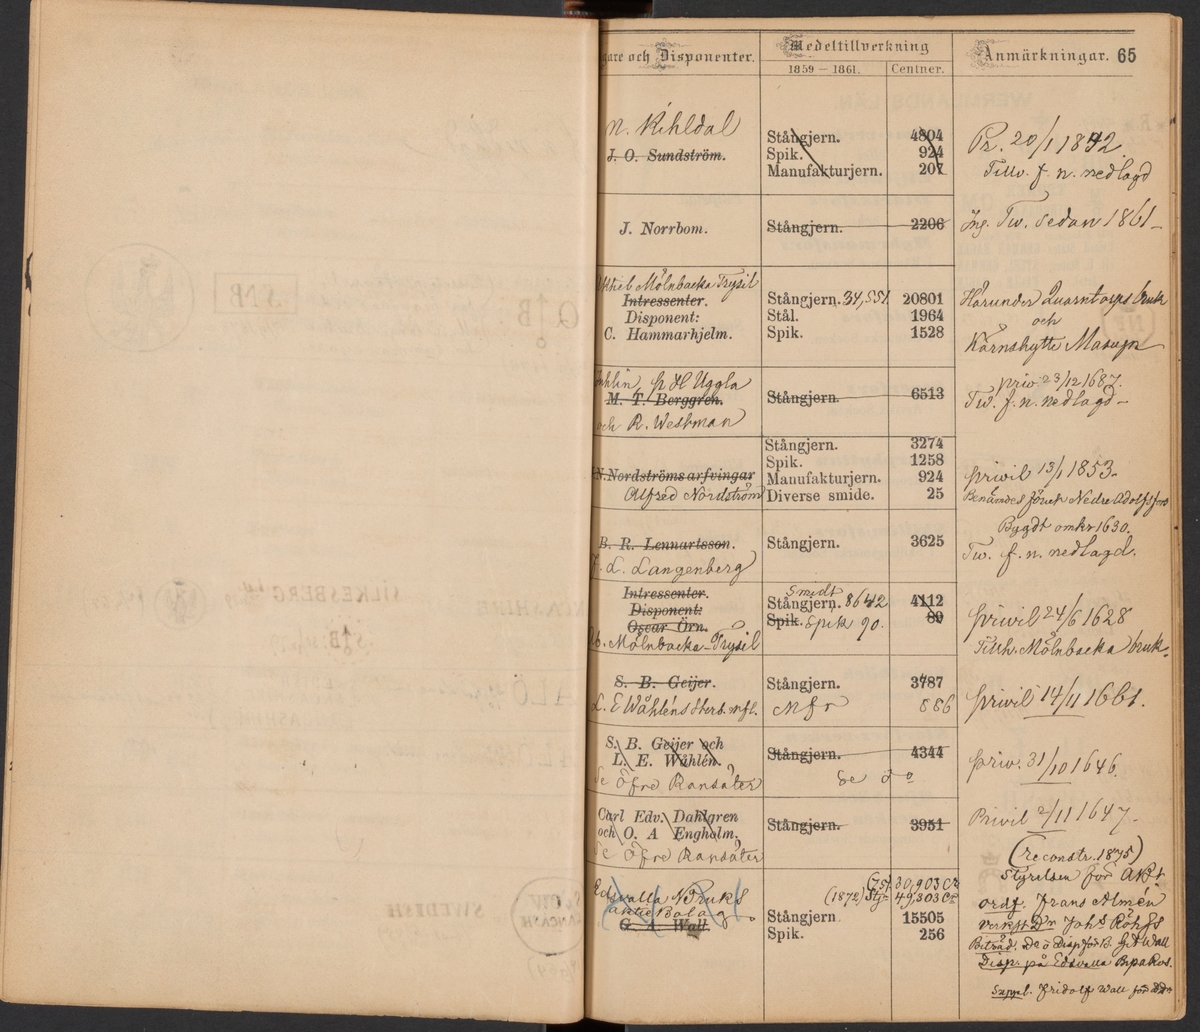 gare och Disponenter.
Medeltillverkning
1859 – 1861.
Centner.
Anmärkningar. 65
N. Kihldal
J. O. Sundström.
Stångjern. 4804
Spik. 924
Manufakturjern. 207
Pr. 20/1 1842.
Tillv. f. n. nedlagd
J. Norrbom.
Stångjern. 2206
Ing. Tw. sedan 1861–
Mölnbacka Trysil
Intressenter.
Disponent:
C. Hammarhjelm.
Stångjern. 34,551 20801
Stål. 1964
Spik. 1528
Härunder Quarntorps bruk
och
Kärnshytte Masugn
H Uggla
M. T. Berggren.
och R. Westman
Stångjern. 6513
priv 23/12 1687.
Tw. f. n. nedlagd–
N. Nordströms arfvingar
Alfred Nordström
Stångjern. 3274
Spik. 1258
Manufakturjern. 924
Diverse smide. 25
privil 13/1 1853–
Benämdes förut Nedre Adolfsfors
B. R. Lennartsson.
L. Langenberg
Stångjern. 3625
Bygdt omkr 1630.
Tw. f. n. nedlagd.
Intressenter.
Disponent:
Oscar Örn.
Mölnbacka–Trysil
Smidt
Stångjern. 8642 4112
Spik. Spik 90. 89
privil 24/6 1628
Tillh. Mölnbacka bruk.
S. B. Geijer.
L. E Wåhléns sterb. mfl.
Stångjern. 3787
Mfr 886
privil 14/11 1661.
S. B. Geijer och
L. E. Wåhlén.
Se Öfre Ransäter
Stångjern. 4344
Se do
priv. 31/10 1646.
Carl Edv. Dahlgren
och O. A Engholm.
Se Öfre Ransäter
Stångjern. 3951
Privil 2/11 1647–
Edsvalla Bruks
aktie Bolag.
G. A. Wall.
(75) 30,903 Ctr
(1872) Stgj 49,803 Ctr
Stångjern 15505
Spik. 256
(reconstr. 1875)
Styrelsen för AB:t
ordf. Frans Almén
Verkst Dr Johs Röhss
Disp. på Edsvalla
Suppl. Fridolf Wall